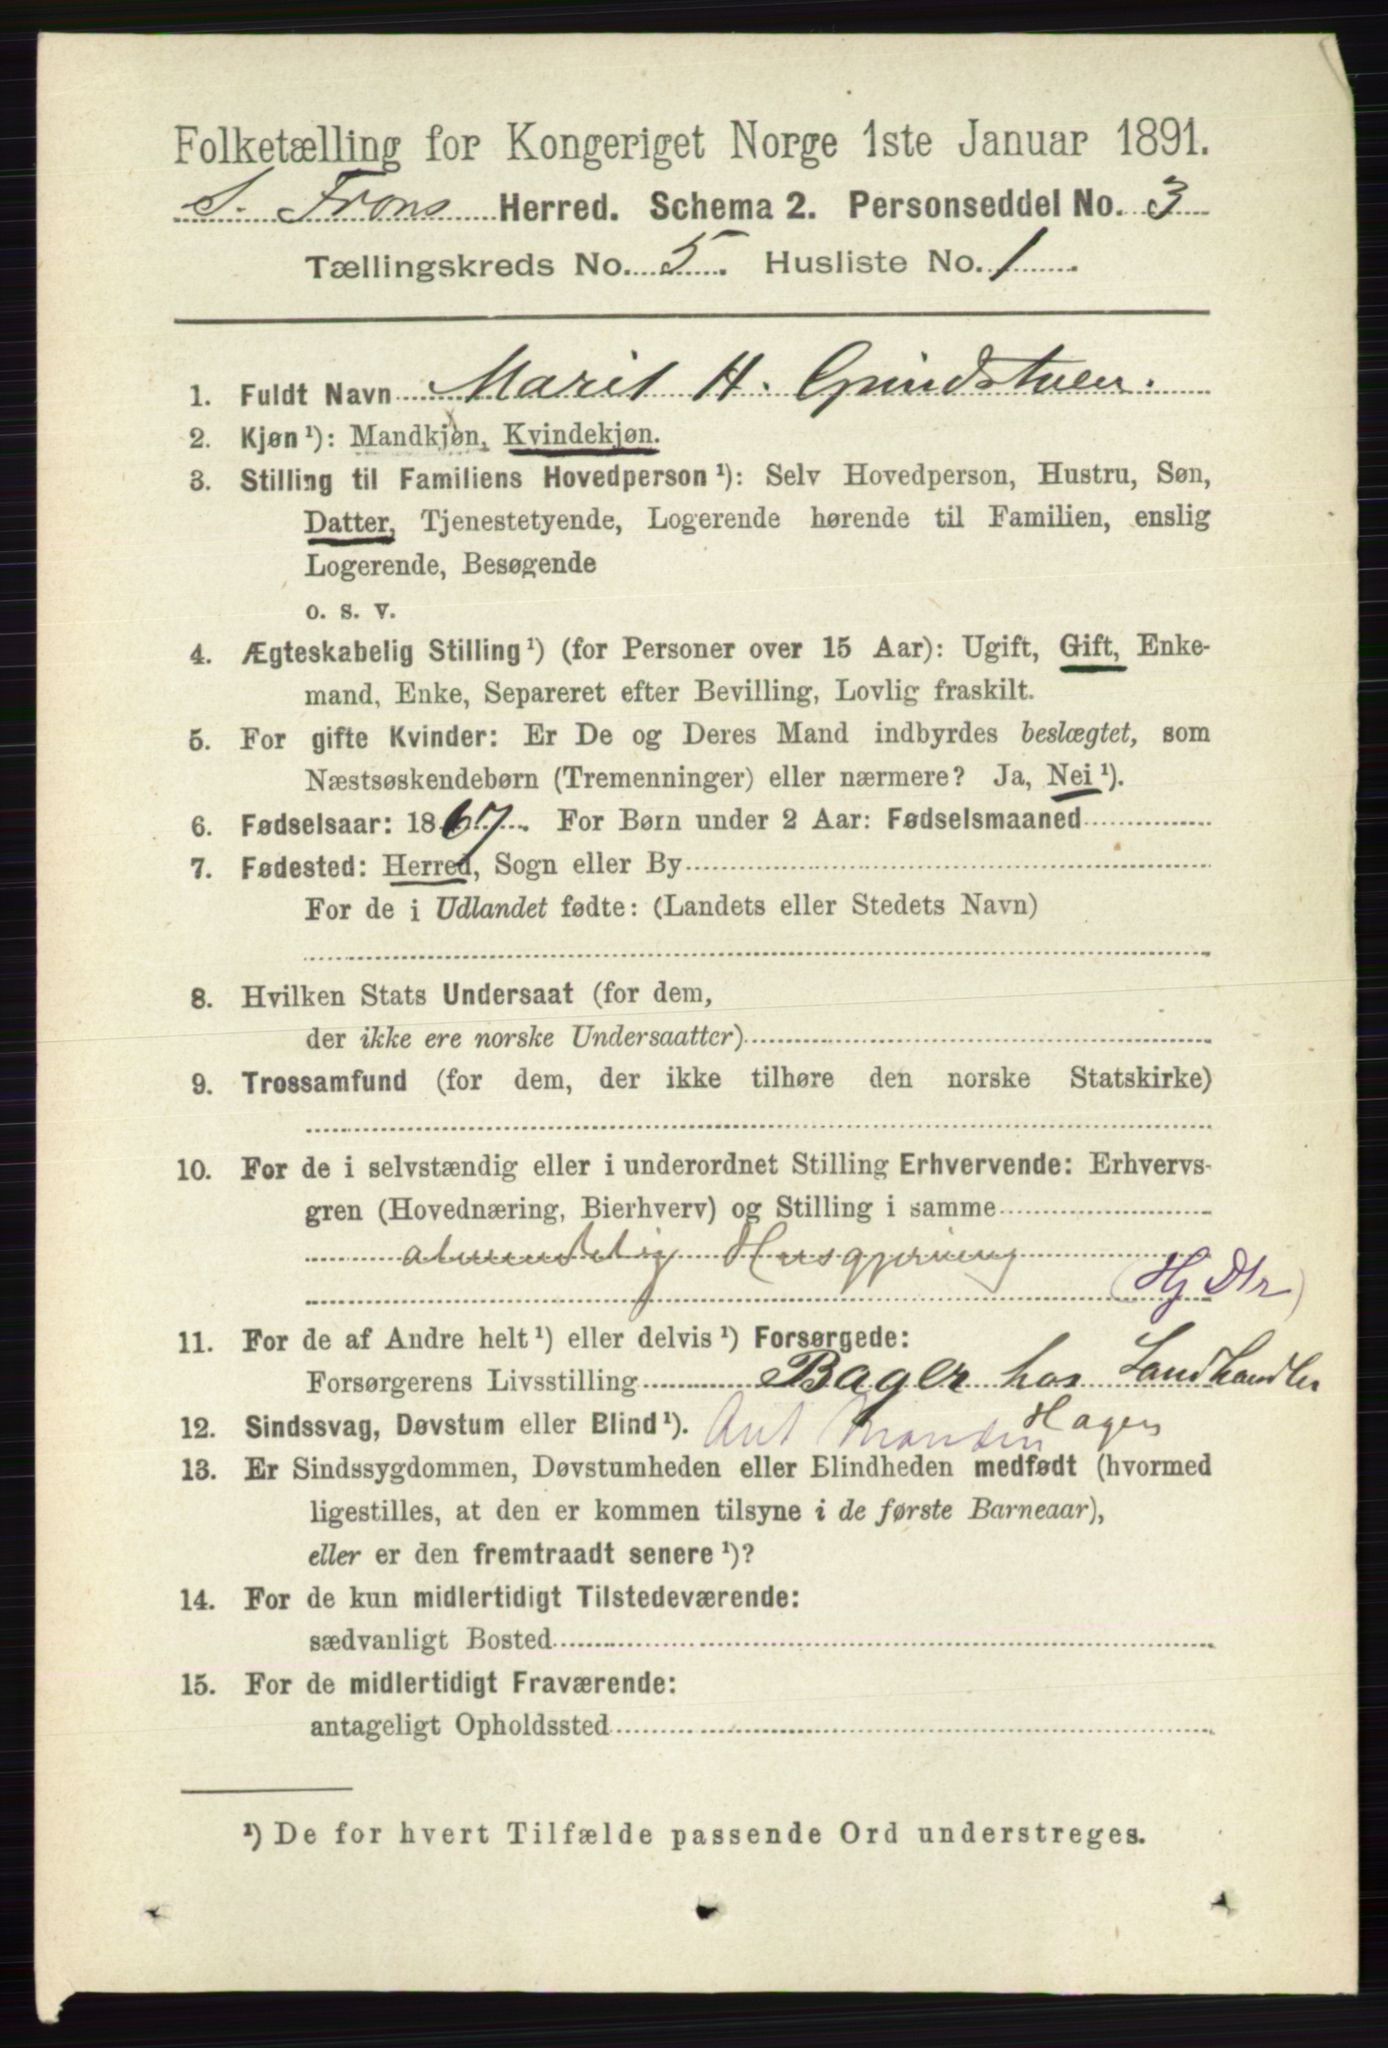 Folketælling for Kongeriget Norge 1ste Januar 1891.
S. Frons Herred. Schema 2. Personseddel No. 3
Tællingskreds No. 5. Husliste No. 1
1. Fuldt Navn Marit H. Grindstuen.
2. Kjøn¹): Mandkjøn, Kvindekjøn.
3. Stilling til Familiens Hovedperson¹): Selv Hovedperson, Hustru, Søn,
Datter, Tjenestetyende, Logerende hørende til Familien, enslig
Logerende, Besøgende
o. s. v.
4. Ægteskabelig Stilling¹) (for Personer over 15 Aar): Ugift, Gift, Enke-
mand, Enke, Separeret efter Bevilling, Lovlig fraskilt.
5. For gifte Kvinder: Er De og Deres Mand indbyrdes beslægtet, som
Næstsøskendebørn (Tremenninger) eller nærmere? Ja, Nei¹).
6. Fødselsaar: 1867. For Børn under 2 Aar: Fødselsmaaned
7. Fødested: Herred, Sogn eller By
For de i Udlandet fødte: (Landets eller Stedets Navn)
8. Hvilken Stats Undersaat (for dem,
der ikke ere norske Undersaatter)
9. Trossamfund (for dem, der ikke tilhøre den norske Statskirke)
10. For de i selvstændig eller i underordnet Stilling Erhvervende: Erhvervs-
gren (Hovednæring, Bierhverv) og Stilling i samme
almindelig Husgjerning
(Hj Dtr)
11. For de af Andre helt¹) eller delvis¹) Forsørgede:
Forsørgerens Livsstilling Bager hos Landhandler
12. Sindssvag, Døvstum eller Blind¹). Hagen
13. Er Sindssygdommen, Døvstumheden eller Blindheden medfødt (hvormed
ligestilles, at den er kommen tilsyne i de første Barneaar),
eller er den fremtraadt senere¹)?
14. For de kun midlertidigt Tilstedeværende:
sædvanligt Bosted
15. For de midlertidigt Fraværende:
antageligt Opholdssted
¹) De for hvert Tilfælde passende Ord understreges.